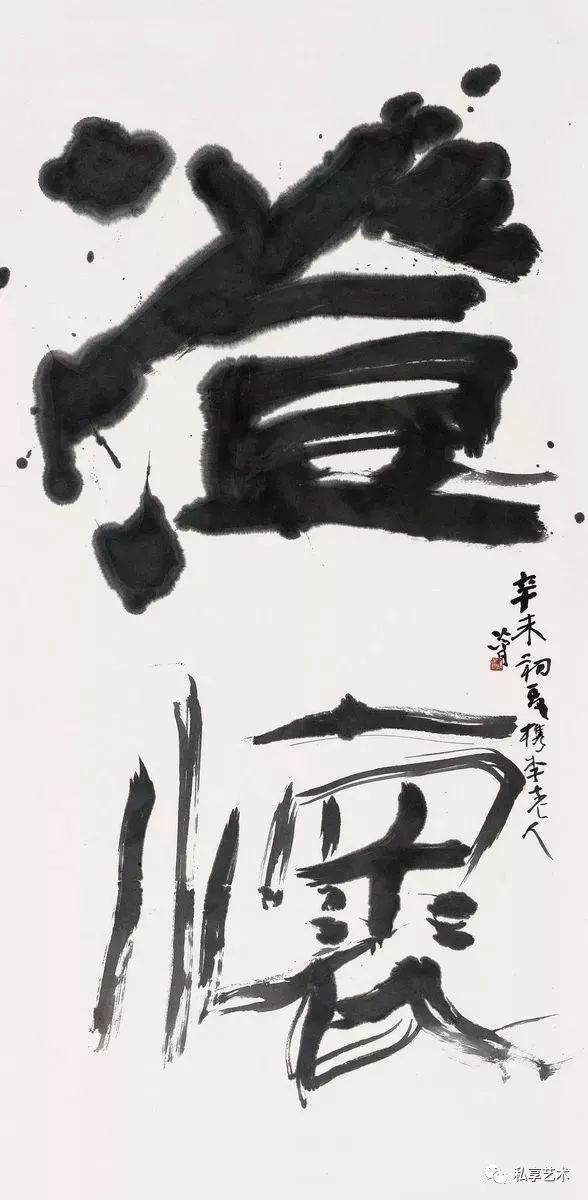 澄懷
辛未初夏檇李老人
私享艺术